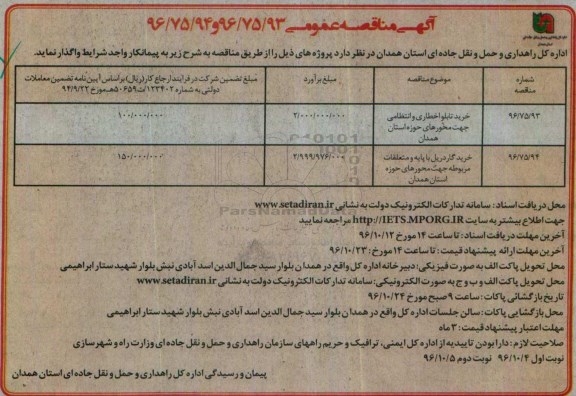 آگهی مناقصه عمومی ۹۶/۷۵/۹۳و۹۶/۷۵/۹۴
اداره کل راهداری و حمل و نقل جاده ای استان همدان در نظر دارد پروژه های ذیل را از طریق مناقصه به شرح زیر به پیمانکار واجد شرایط واگذار نماید.
شماره مناقصه
موضوع مناقصه
مبلغ برآورد
مبلغ تضمین شرکت در فرایند ارجاع کار(ریال) براساس آیین نامه تضمین معاملات
دولتی به شماره ۱۲۳۴۰۲/ت۵۰۶۵۹هـ مورخ ۹۴/۹/۲۲
۹۶/۷۵/۹۳
خرید تابلو اخطاری و انتظامی
جهت محورهای حوزه استان
همدان
۲/۰۰۰/۰۰۰/۰۰۰
۱۰۰/۰۰۰/۰۰۰
۹۶/۷۵/۹۴
خرید گاردریل با پایه و متعلقات
مربوطه جهت محورهای حوزه
استان همدان
۲/۹۹۹/۹۷۶/۰۰۰
۱۵۰/۰۰۰/۰۰۰
محل دریافت اسناد: سامانه تدارکات الکترونیک دولت به نشانی www.setadiran.ir
جهت اطلاع بیشتر به سایت http://IETS.MPORG.IR مراجعه نمایید
آخرین مهلت دریافت اسناد: تا ساعت ۱۴ مورخ ۹۶/۱۰/۱۲
آخرین مهلت ارائه پیشنهاد قیمت: تا ساعت ۱۴ مورخ: ۹۶/۱۰/۲۳
محل تحویل پاکت الف به صورت فیزیکی: دبیرخانه اداره کل واقع در همدان بلوار سید جمال الدین اسد آبادی نبش بلوار شهید ستار ابراهیمی
محل تحویل پاکت الف و ب و ج به صورت الکترونیکی: سامانه تدارکات الکترونیک دولت به نشانی www.setadiran.ir
تاریخ بازگشائی پاکات: ساعت ۹ صبح مورخ ۹۶/۱۰/۲۴
محل بازگشایی پاکات: سالن جلسات اداره کل واقع در همدان بلوار سید جمال الدین اسد آبادی نبش بلوار شهید ستار ابراهیمی
مهلت اعتبار پیشنهاد قیمت: ۳ ماه
صلاحیت لازم: دارا بودن تاییدیه از اداره کل ایمنی، ترافیک و حریم راههای سازمان راهداری و حمل و نقل جاده ای وزارت راه و شهرسازی
نوبت اول ۹۶/۱۰/۴ نوبت دوم ۹۶/۱۰/۵
پیمان و رسیدگی اداره کل راهداری و حمل و نقل جاده ای استان همدان